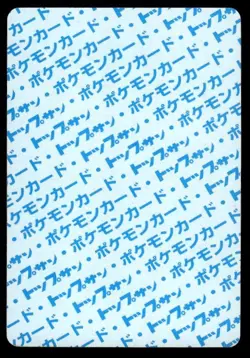 ポケモンカード・
トップサン・ポケモンカード
ポケモンカード・トップサン・
トップサン・ポケモンカード・
ポケモンカード・トップサン・
トップサン・ポケモンカード・
ポケモンカード・トップサン・
トップサン・ポケモンカード・
ポケモンカード・トップサン・
トップサン・ポケモンカード・
カード・トップサン・